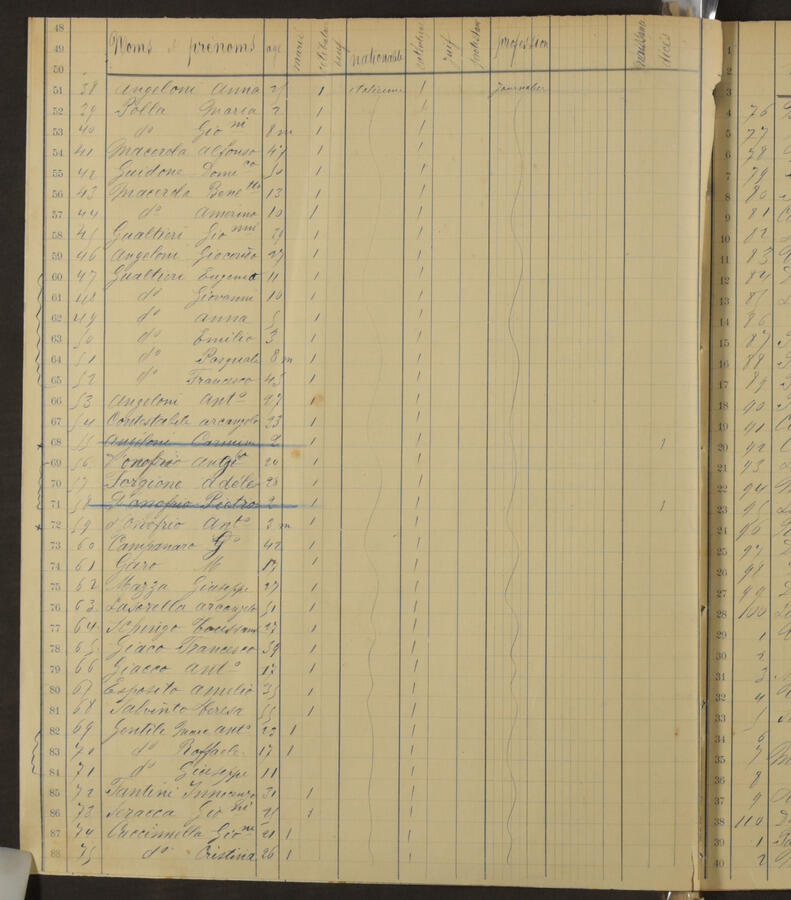 48
49 Noms et prénoms age marié célibataire veuf nationalité catholice juif protestan profession naissance décès
50
51 38 Angeloni Anna 25 1 italienne 1 journalier
52 39 Polla Maria 2 1 1
53 40 do Gioni 8 m 1 1
54 41 Macerola Alfonso 47 1 1
55 42 Guidone Domico 50 1 1
56 43 Macerola Benetto 13 1 1
57 44 do Amerino 10 1 1
58 45 Gualtieri Gionni 39 1 1
59 46 Angeloni 27 1 1
60 47 Gualtieri Eugenio 11 1 1
61 48 do Giovanni 10 1 1
62 49 do Anna 5 1 1
63 50 do Emilio 3 1 1
64 51 do Pasquale 8 m 1 1
65 52 do Francesco 45 1 1
66 53 Angeloni Anto 27 1 1
67 54 Contestabile arcangelo 23 1 1
68 55 Angeloni Carmine 2 1 1 1
69 56 Donofrio 20 1 1
70 57 Sorgione Adele 28 1 1
71 58 Donofrio Pietro 2 1 1 1
72 59 d'onofrio Anto 3 m 1 1
73 60 Campanaro Go 42 1 1
74 61 Garo M 17 1 1
75 62 Mazza Giuseppe 27 1 1
76 63 Lasorella arcangelo 51 1 1
77 64 27 1 1
78 65 Giaco Francesco 39 1 1
79 66 Giacco Anto 17 1 1
80 67 Esposito Amelio 35 1 1
81 68 Salvinto Teresa 55 1 1
82 69 Gentile Anto 22 1 1
83 70 do Raffaele 17 1 1
84 71 do Giuseppe 11 1
85 72 Fantini Innocenzo 31 1 1
86 73 Seracca Gioni 25 1 1
87 74 Cuccinnella Gioni 21 1 1
88 75 do Cristina 26 1 1
1
2
3
4 76
5 77
6 78
7 79
8 80
9 81
10 82
11 83
12 84
13 85
14 86
15 87
16 88
17 89
18 90
19 91
20 92
21 93
22 94
23 95
24 96
25 97
26 98
27 99
28 100
29 1
30 2
31 3
32 4
33 5
34 6
35 7
36 8
37 9
38 110
39 1
40 2